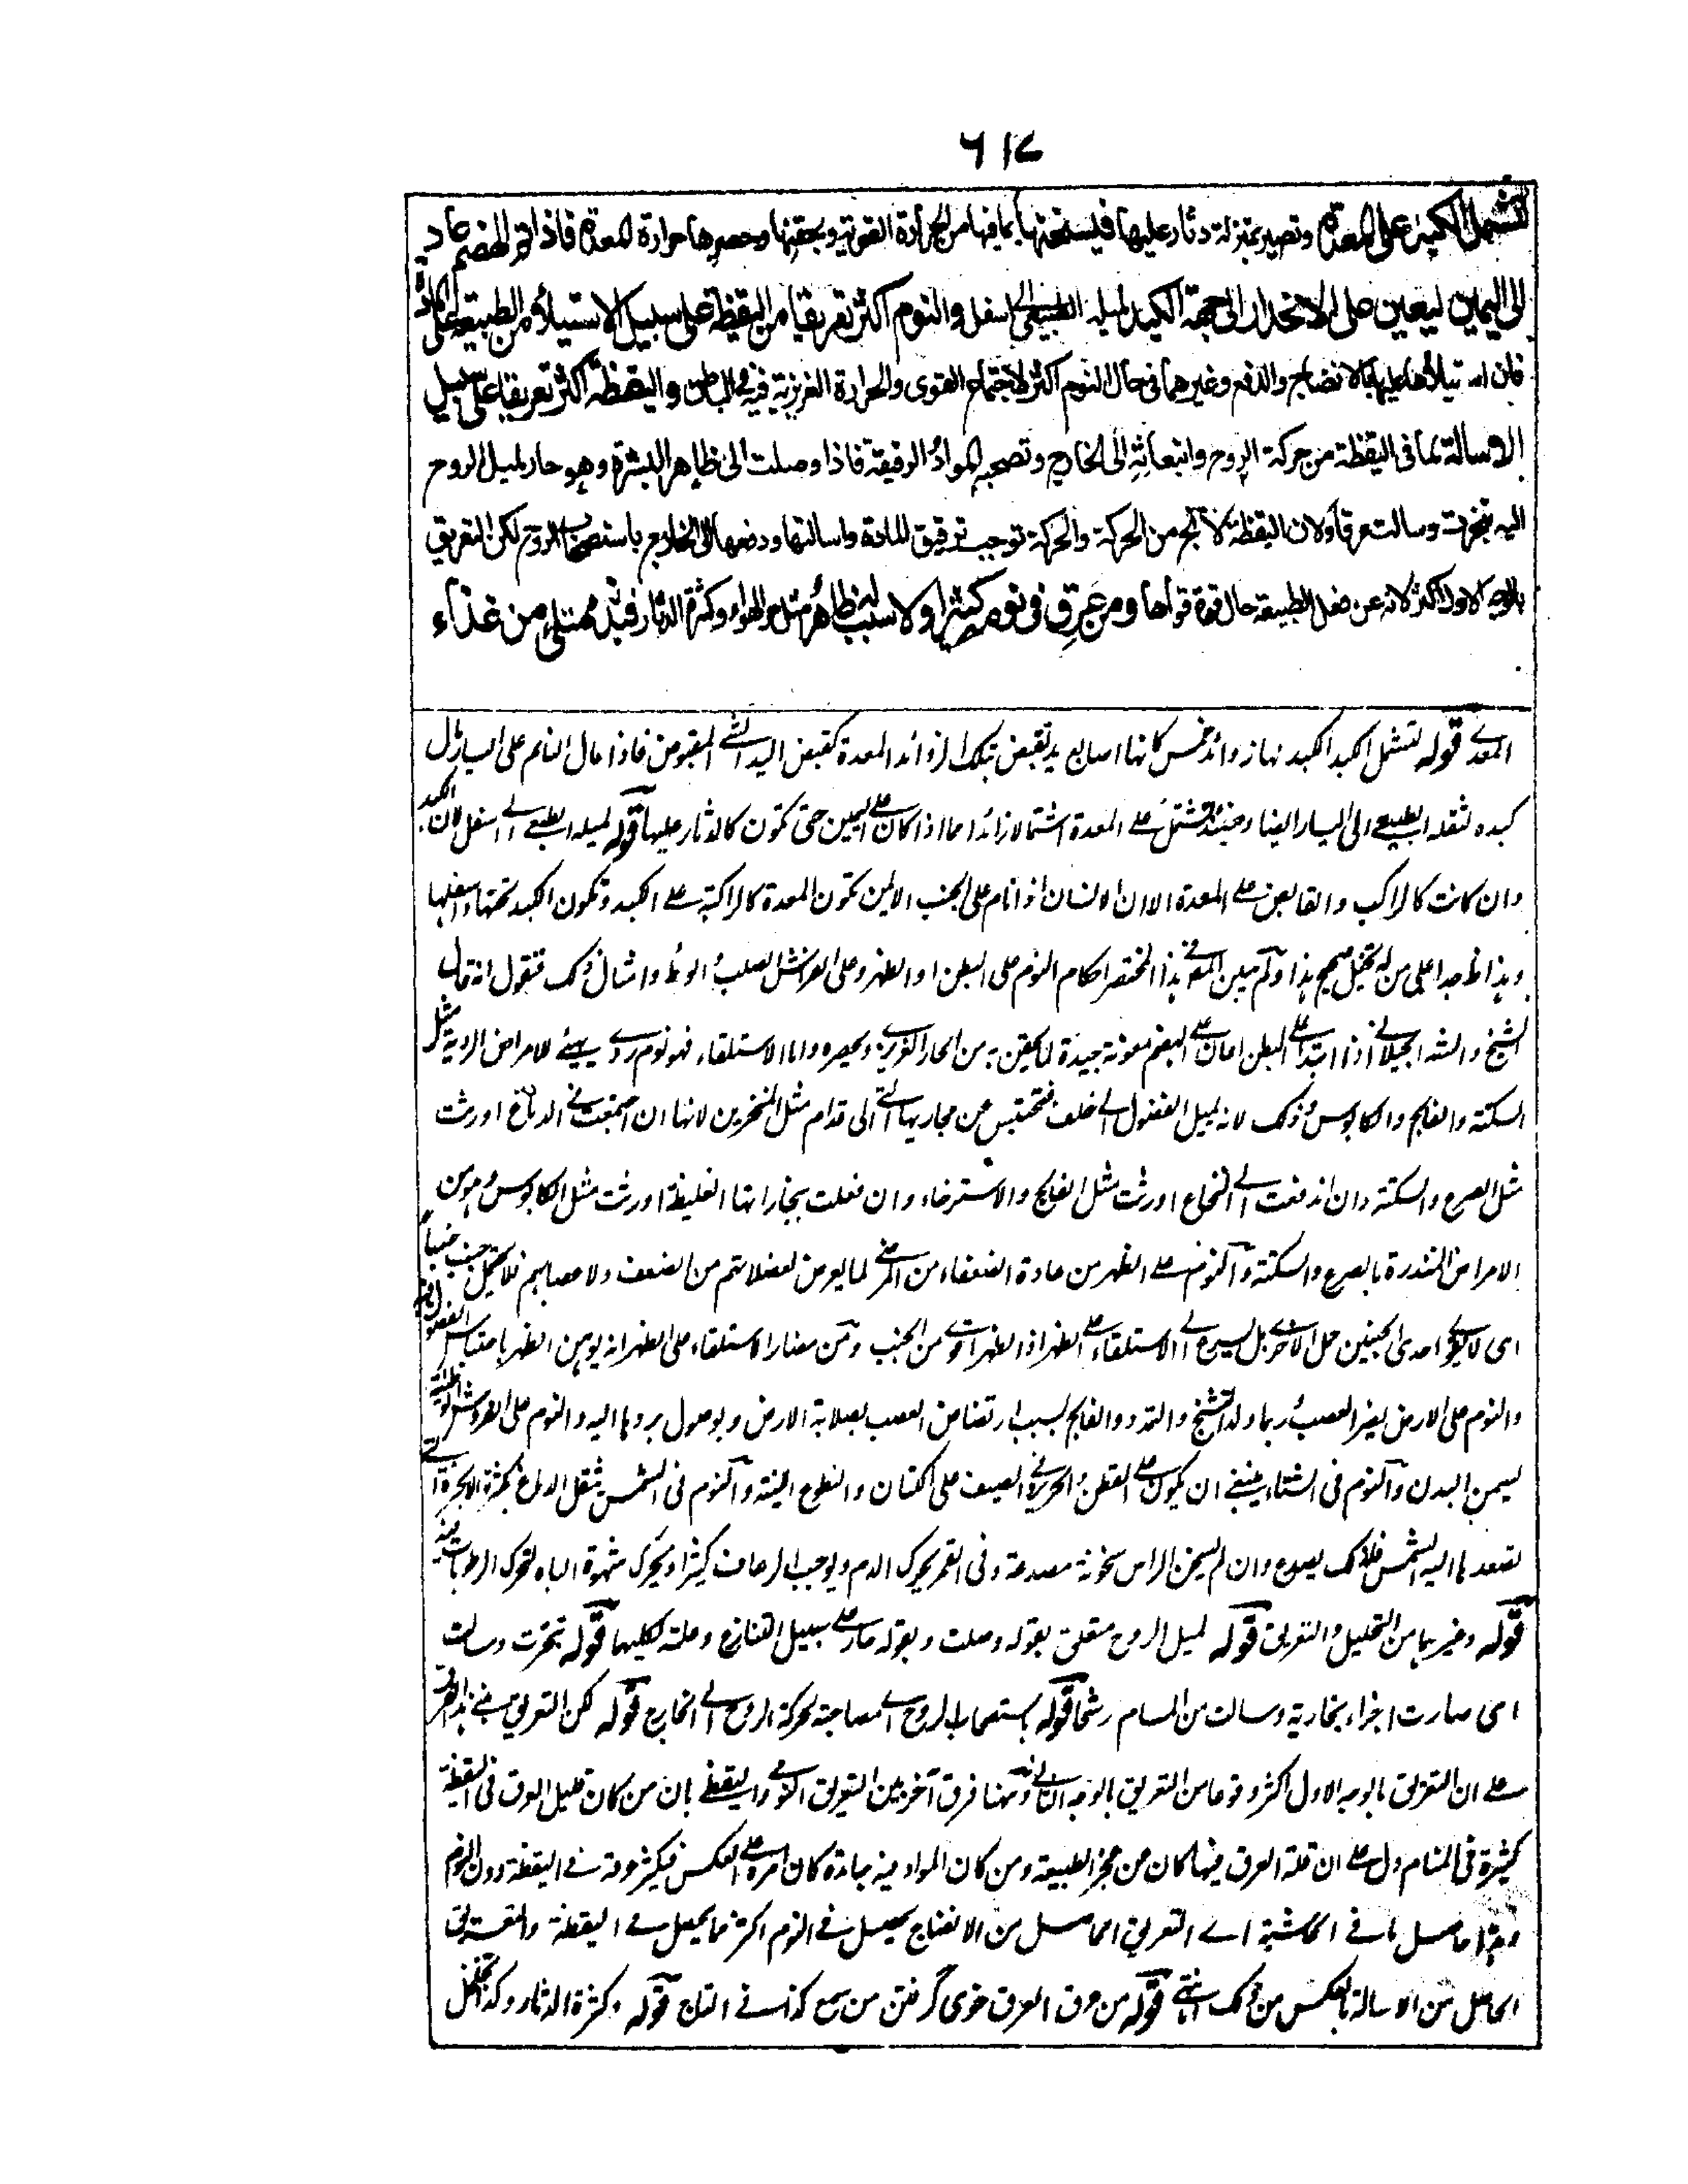 ٦١٧
لتشتمل الكبد على المعدة وتصير بمنزلة دثار عليها فيسخنها بما فيها من الحرارة القوية ويحقنها وحصرها حرارة المعدة فاذا تم الهضم عاد
الى اليمين ليعين على الانحدار الى جهة الكبد لميله الطبيعى الى اسفل والنوم اكثر تعريقا من اليقظة على سبيل الاستيلاء من الطبيعة على المادة
فان استيلاءها عليها بالانضاج والدفع وغيرهما فى حال النوم اكثر لاجتماع القوى والحرارة الغريزية فيه فى الباطن واليقظة اكثر تعريقا على سبيل
الاسالة لما فى اليقظة من حركة الروح وانبعاثه الى الخارج وتصحبه المواد الرقيقة فاذا وصلت الى ظاهر البشرة وهو حار لميل الروح
اليه تبخرت وسالت عرقا ولان اليقظة لا تخ من الحركة والحركة توجب ترقيق المادة واسالتها ودفعها الى الخارج باستصحاب الروح لكن التعريق
بالوجه الاول اكثر لانه عن فعل الطبيعة حال قوة قواها ومن عرق فى نومه كثيرا ولا سبب ظاهر مثل حر الهواء وكثرة الدثار فبدنه ممتلئ من غذاء
المعدے قوله لتشتمل الكبد الكبد لها زوائد خمس كانها اصابع يد تقبض بتلك الزوائد المعدة كقبض اليد الشئ المقبوض فاذا مال النائم على اليسار مال
كبده لثقله الطبيعے الى اليسار ايضا وحينئذ تشتمل علے المعدة اشتمالا زائدا مما اذا كان علے اليمين حتى تكون كالدثار عليها قوله لميله الطبيعے الے اسفل لان الكبد
وان كانت كالراكب والقابض علے المعدة الا ان الانسان اذا نام على الجنب الايمن تكون المعدة كالراكبة علے الكبد وتكون الكبد تحتها واسفلها
وهذا ظ جدا على من له تخيل صحيح هذا ولم يبين المص فے هذا المختصر احكام النوم على البطن او الظهر وعلى الفرش الصلب او الوطأ وامثال ذلك فنقول انه قال
الشيخ والشه الجيلانے اذا ابتدأ علے البطن اعان علے الهضم معونة جيدة لما يحقن به من الحار الغريزے ويحصره واما الاستلقاء فهو نوم ردے يهيئ للامراض الردية مثل
السكتة والفالج والكابوس وذلك لانه يميل الفضول الے خلف فتحتبس عن مجاريها التے الى قدام مثل المنخرين لانها ان اجتمعت فے الدماغ اورثت
مثل الصرع والسكتة وان اندفعت الے النخاع اورثت مثل الفالج والاسترخاء وان فعلت ببخاراتها الغليظة اورثت مثل الكابوس وهو من
الامراض المنذرة بالصرع والسكتة والنوم علے الظهر من عادة الضعفاء من المرضے لما يعرض لعضلاتهم من الضعف ولاعصابهم فلا يحمل جنب جنبا
اى لا يقوے احدى الجنبين حمل الاخرے بل يسرع الے الاستلقاء علے الظهر اذ الظهر اقوے من الجنب ومن مضار الاستلقاء على الظهر انه يوهن الظهر باحتباس الفضول فيه
والنوم على الارض يضر العصب وربما ولد التشنج والتمدد والفالج بسبب ارتضاض العصب بصلابة الارض وبوصول بردها اليه والنوم على الفرش الوطيئة
يسمن البدن والنوم فى الشتاء ينبغے ان يكون علے القطن والحرير وفے الصيف على الكتان والنطوع اللينة والنوم فى الشمس يثقل الدماغ بكثرة الابخرة التے
تصعدها اليه الشمس فلذلك يصدع وان لم يسخن الراس سخونة مصدعة وفى القمر يحرك الدم ويوجب الرعاف كثيرا ويحرك شهوة الباه لتحرك الرطوبات فيه
قوله وغيرهما من التحليل والتعريق قوله لميل الروح متعلق بقوله وصلت وبقوله حار علے سبيل التنازع وعلة لكليهما قوله تبخرت وسالت
اى صارت اجزاء بخارية وسالت من المسام رشحا قوله باستصحاب الروح اے مصاحبة لحركة الروح الے الخارج قوله لكن التعريق مبنے هذا الفرق
علے ان التعريق بالوجه الاول اكثر وقوعا من التعريق بالوجه الثانے وههنا فرق آخر بين التعريق النومے واليقظے بان من كان قليل العرق فى اليقظة
كثيره فى المنام دل علے ان قلة العرق فيها كان من عجز الطبيعة ومن كان المواد فيه جامدة كان امره علے العكس فيكثر عرقه فے اليقظة دون النوم
وهذا حاصل ما فے الحاشية اے التعريق الحاصل من الانضاج يحصل فے النوم اكثر مما يحصل فے اليقظة والتعريق
الحاصل من الاسالة بالعكس من ذلك انتهے قوله من عرق العرق خوى گرفتن من سمع كذا فے التاج قوله وكثرة الدثار وكذا